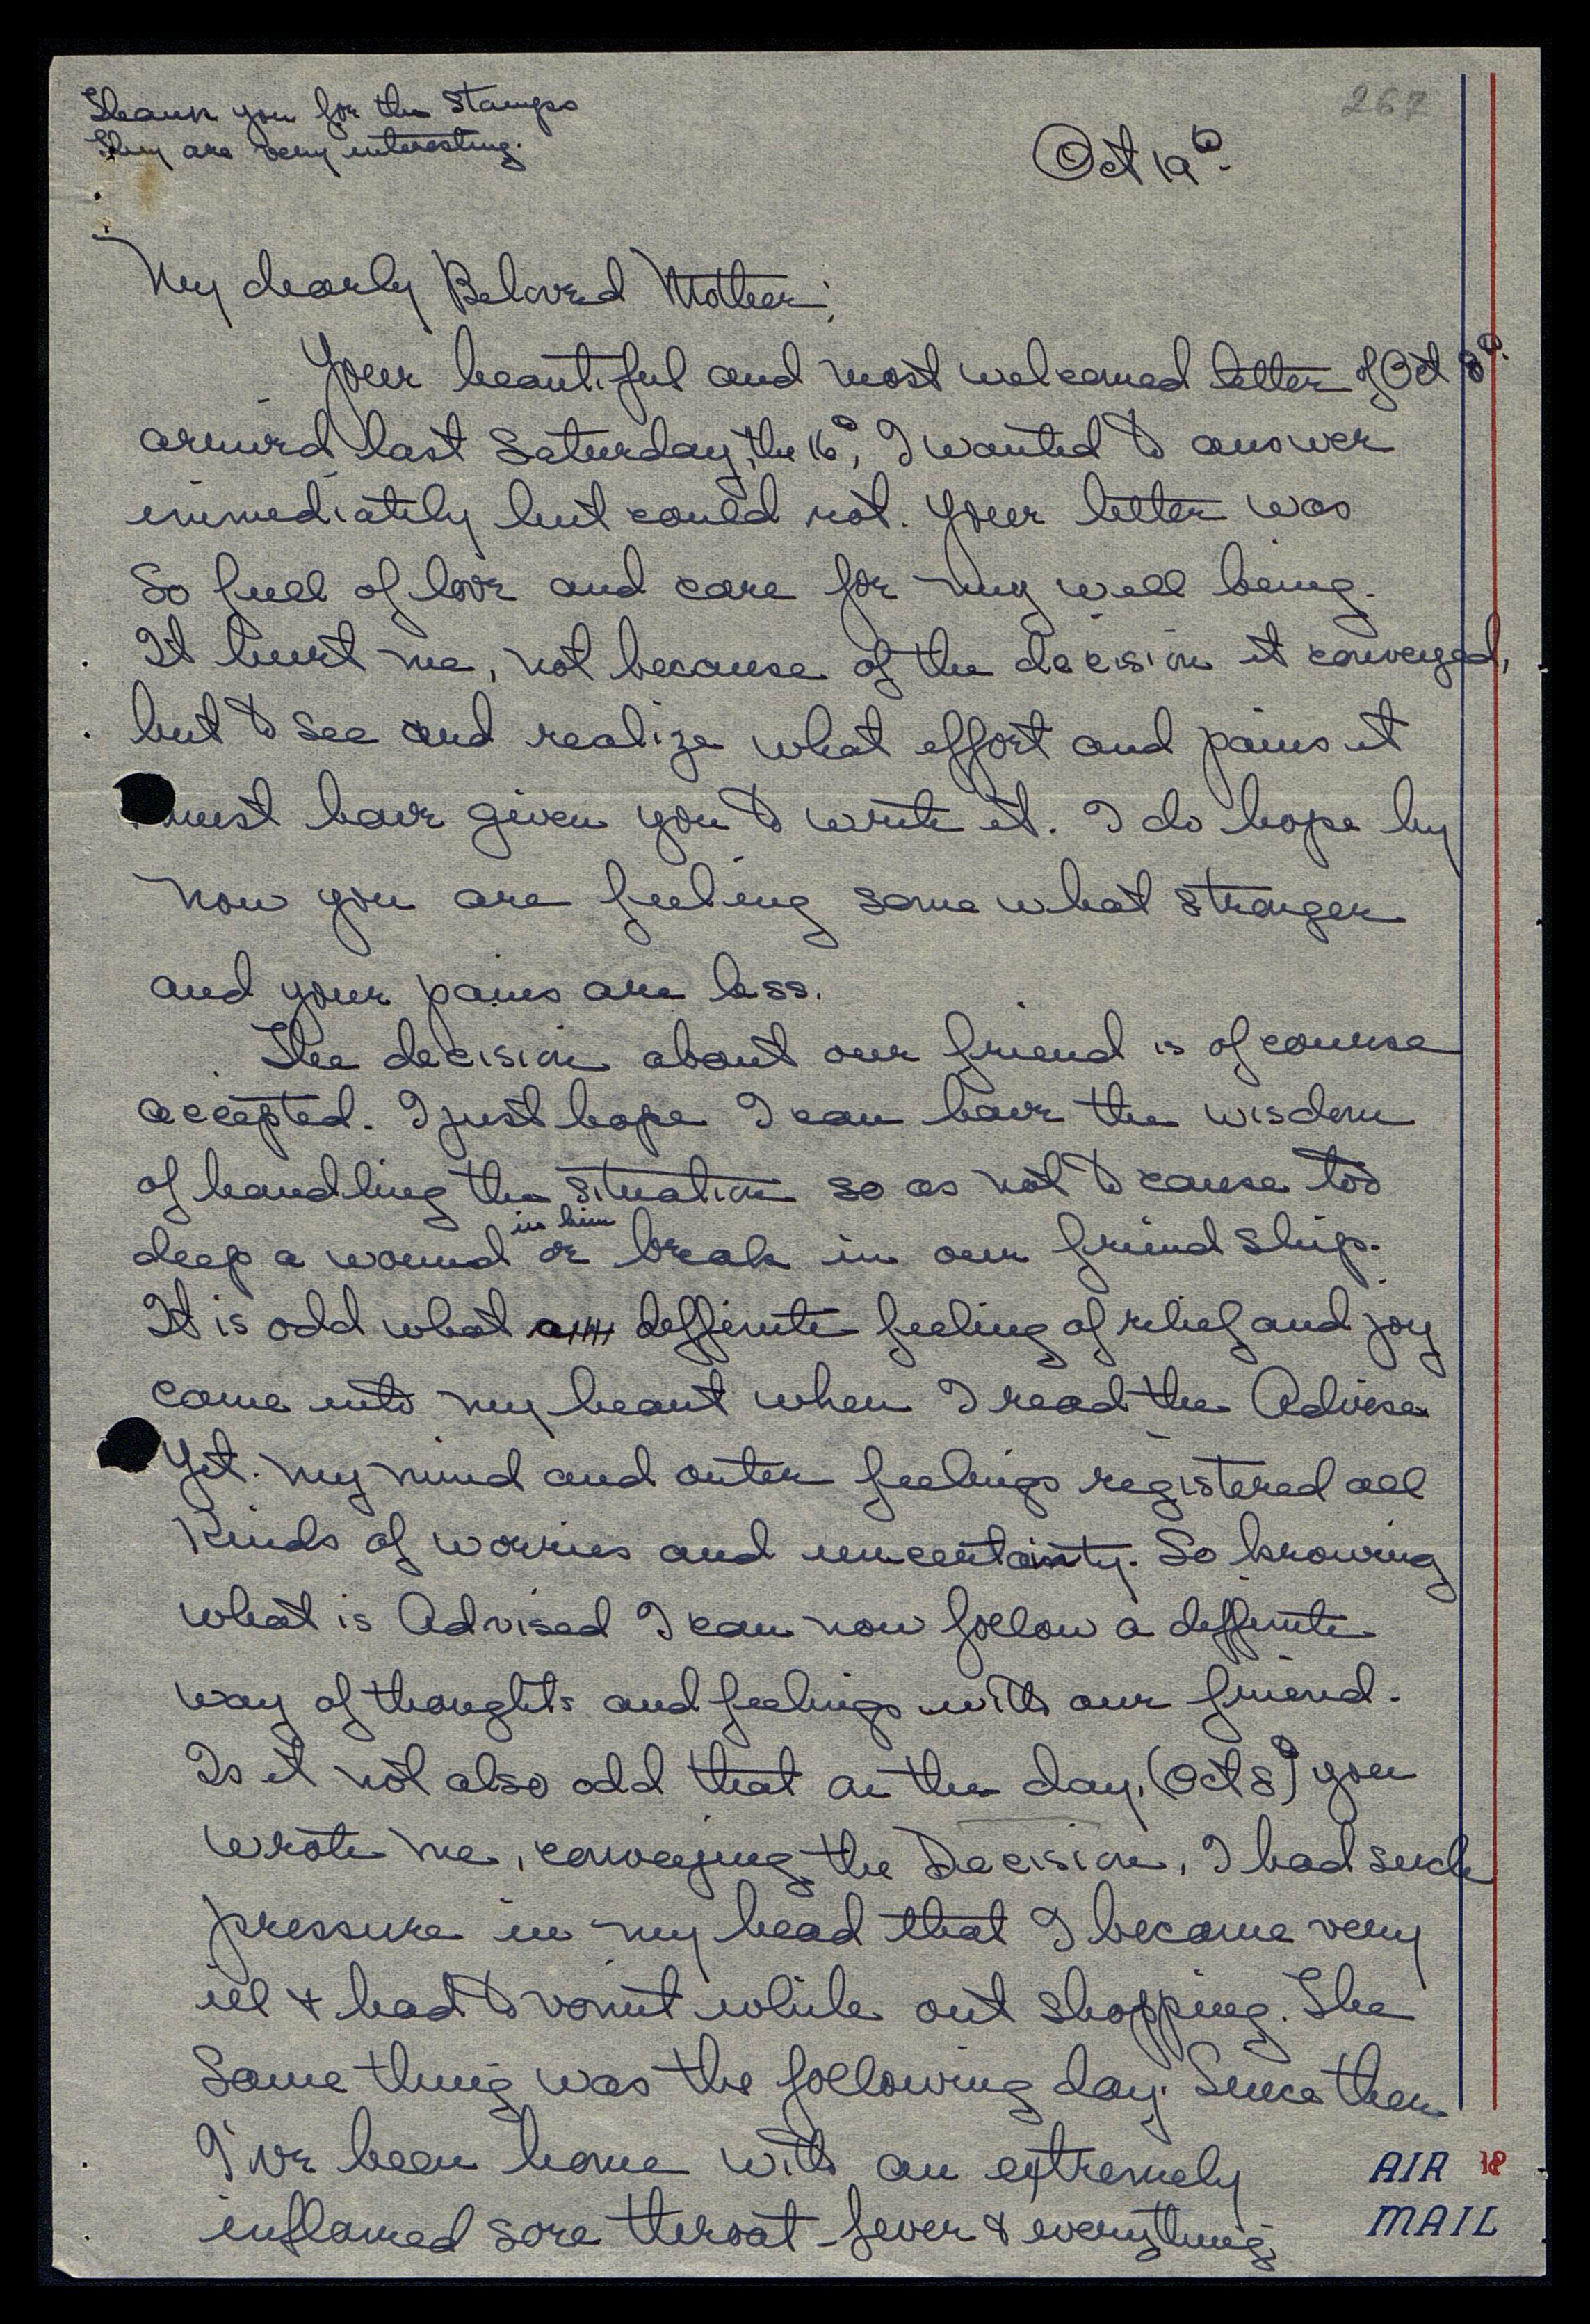 Thank you for the Stamps
They are very interesting.
267
Oct 19th.
My dearly Beloved Mother;
Your beautiful and most welcomed letter of Oct 8th.
arrived last Saturday, the 16th, I wanted to answer
immediately but could not. Your letter was
So full of love and care for my well being.
It hurt me, not because of the decision it conveyed,
but to see and realize what effort and pains it
must have given you to write it. I do hope by
now you are feeling some what stronger
and your pains are less.
The decision about our friend is of course
accepted. I just hope I can have the wisdom
of handling the situation so as not to cause too
in him
deep a wound or break in our friendship.
It is odd what a deffinite feeling of relief and joy
came into my heart when I read the Advise
Yet. my mind and outer feelings registered all
kinds of worries and uncertainty. So knowing
what is Advised I can now follow a deffinite
way of thoughts and feelings with our friend.
Is it not also odd that on the day, (Oct 8th) you
wrote me, conveying the Decision, I had such
pressure in my head that I became very
ill + had to vomit while out shopping. The
Same thing was the following day. Since then
I've been home with an extremely
inflamed sore throat - fever & everything
AIR 18
MAIL